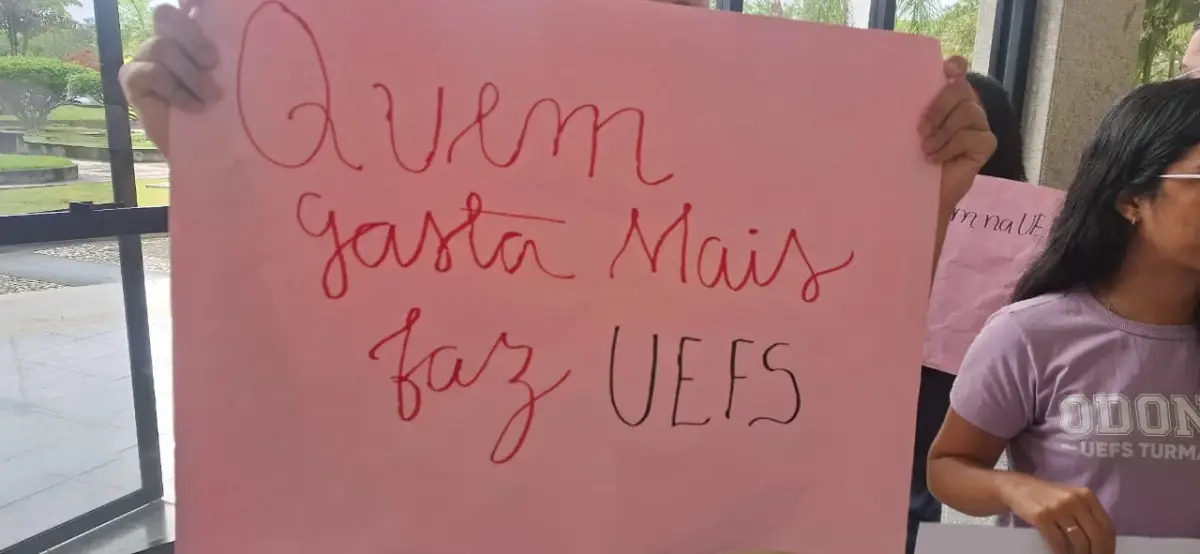 Quem
gasta Mais
faz UEFS
m na UE
ODON
UEFS TURMA